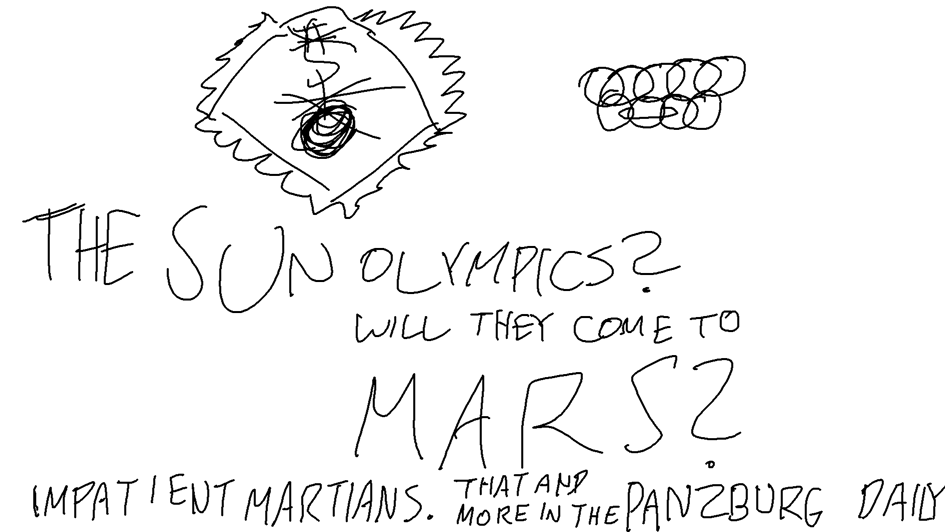 THE SUN OLYMPICS?
WILL THEY COME TO
MARS?
IMPATIENT MARTIANS. THAT AND
MORE IN THE PANZBURG DAILY